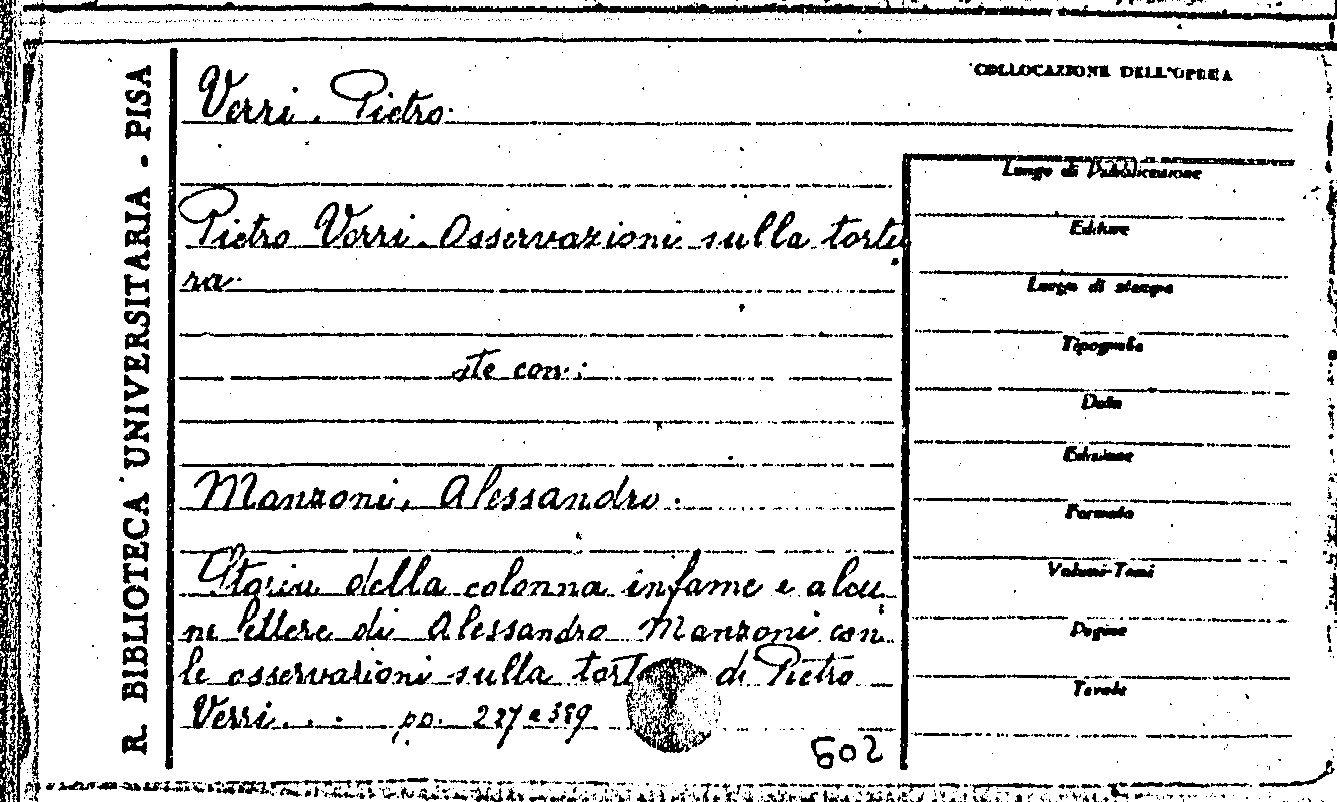 R. BIBLIOTECA UNIVERSITARIA - PISA
COLLOCAZIONE DELL'OPERA
Verri, Pietro.
Pietro Verri. Osservazioni sulla tortu
ra.
ste con:
Manzoni, Alessandro.
Storia della colonna infame e alcu,
ne lettere di Alessandro Manzoni con
le osservazioni sulla di Pietro
Verri... pp. 227 a 389
502
Luogo di Pubblicazione
Editore
Luogo di stampa
Tipografia
Data
Edizione
Formato
Volumi-Tomi
Pagine
Tavole